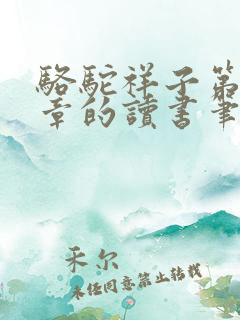 駱駝祥子第
章的讀書筆
禾尔
未任同意禁止转载